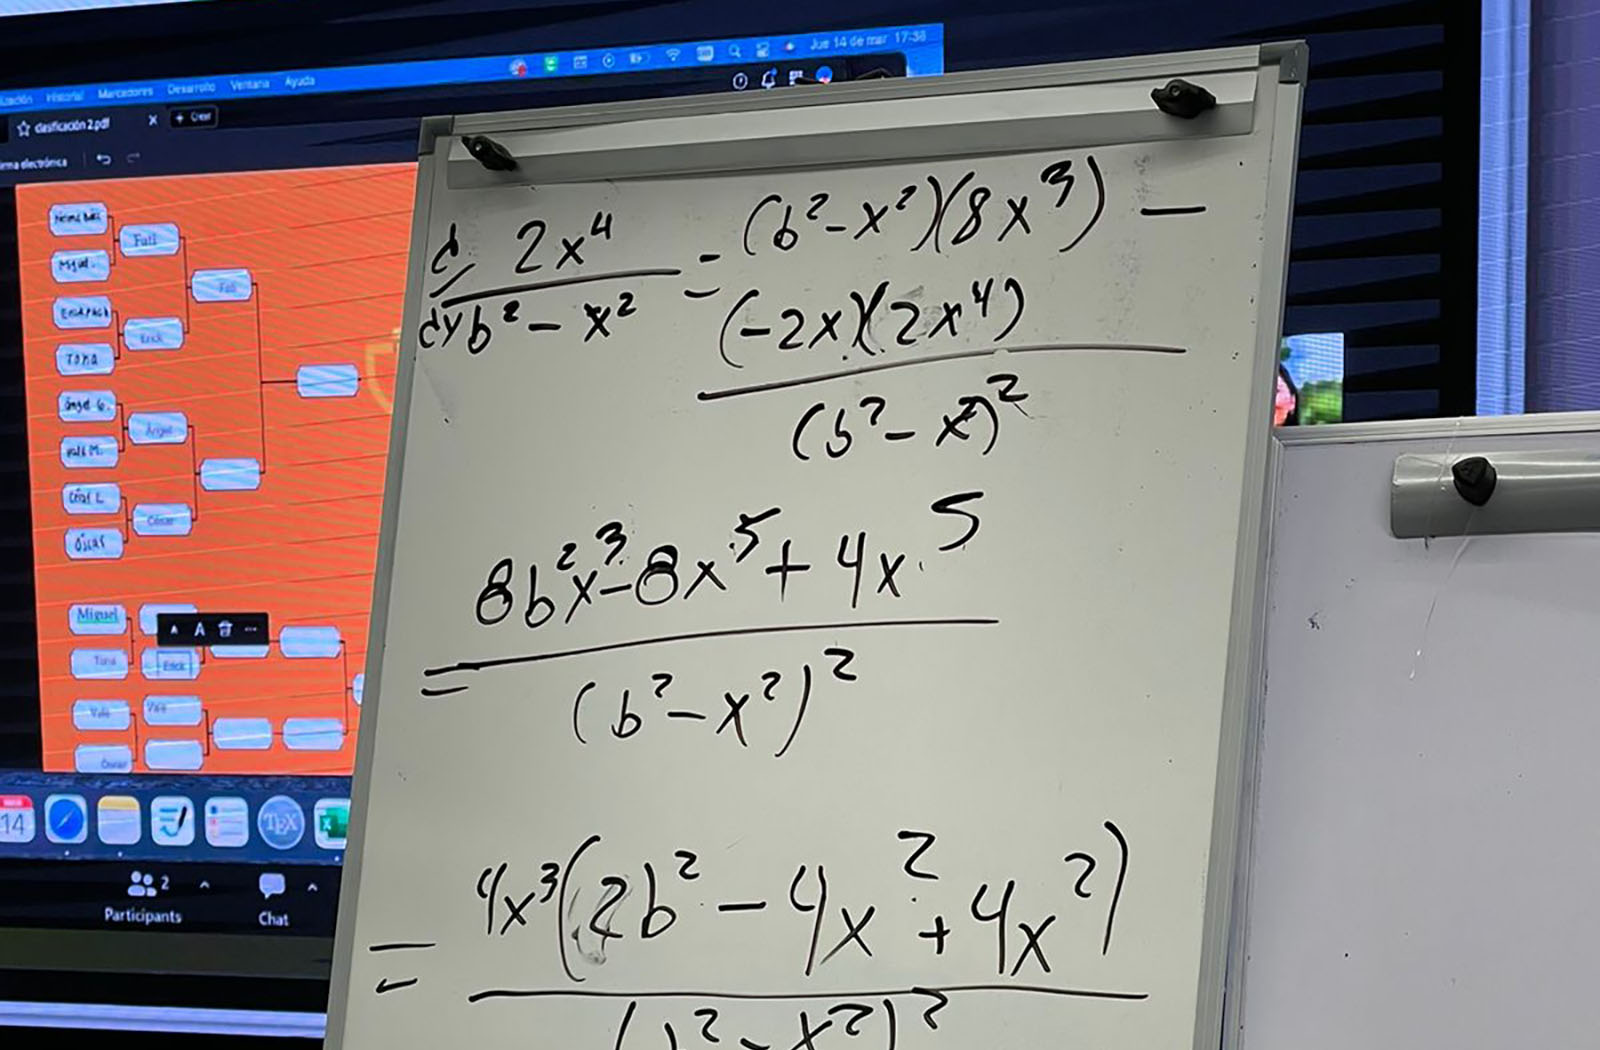 Jue 14 de mar 17:38
Historial Marcadores Desarrollo Ventana Ayuda
clasificación 2.pdf
+ Crear
Fati
Miguel
Fati
Erick
Tona
Ángel G.
Ángel
César L
César
Óscar
Miguel
Tona
Erick
Vale
Vale
14
TEX
2
Participants
Chat
d/dy 2x⁴/(b² - x²) = (b² - x²)(8x³) -
(-2x)(2x⁴)
(b² - x²)²
8b²x³ - 8x⁵ + 4x⁵
=
(b² - x²)²
= 4x³(2b² - 4x² + 4x²)
(b² - x²)²